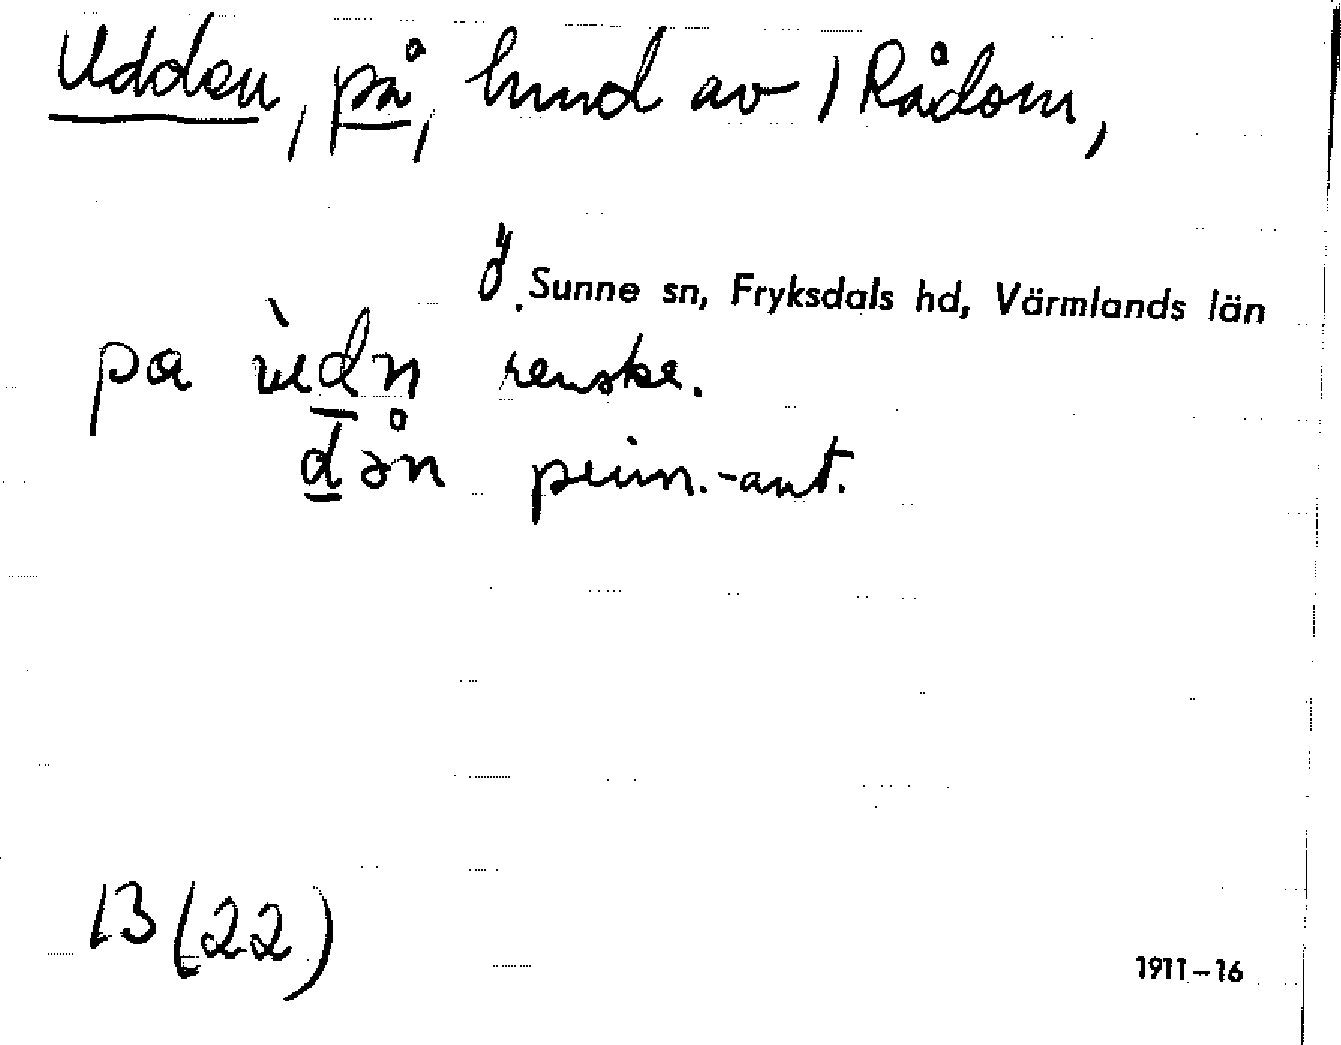 Udden, på, hmd av 1 Rådom,
Ö. Sunne sn, Fryksdals hd, Värmlands län
pa renskr.
prim.-ant.
13 (22)
1911–16